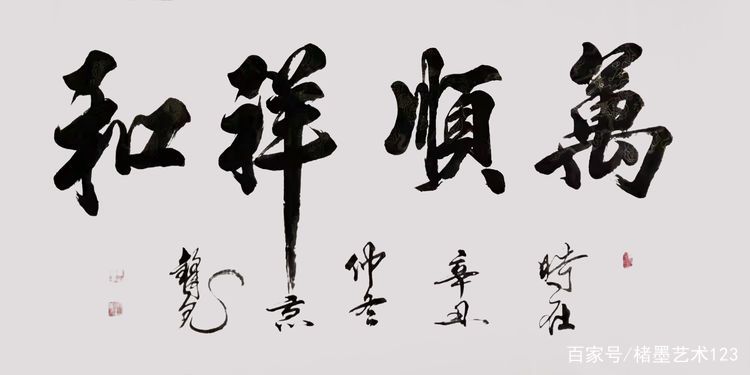 萬順祥和
時在辛丑仲冬京
百家号/楮墨艺术123